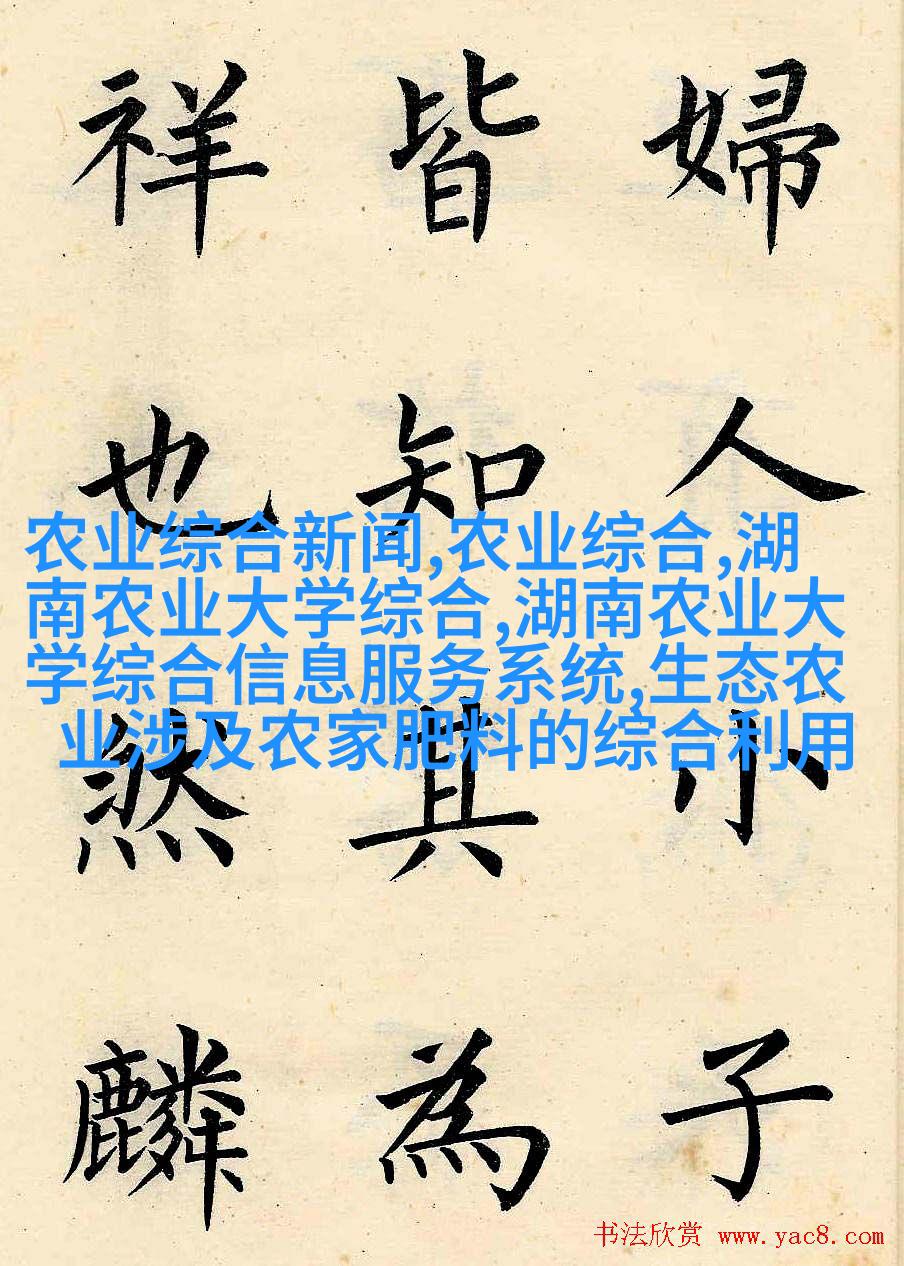 婦人小子
皆知其為
祥也然麟
农业综合新闻,农业综合,湖
南农业大学综合,湖南农业大
学综合信息服务系统,生态农
业涉及农家肥料的综合利用
书法欣赏 www.yac8.com